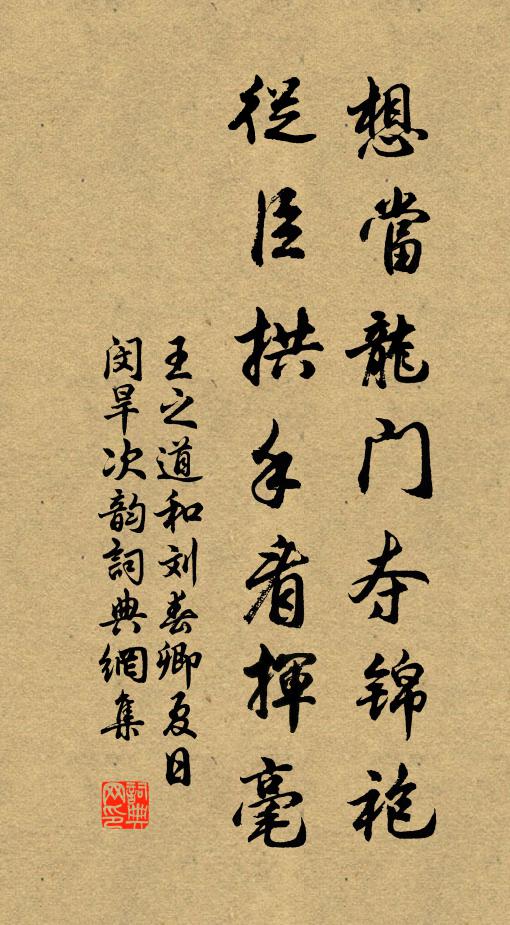 想當龍门夺锦袍
從臣拱手看揮毫
王之道和刘春卿夏日
闵旱次韵詞典網集
詞典网印